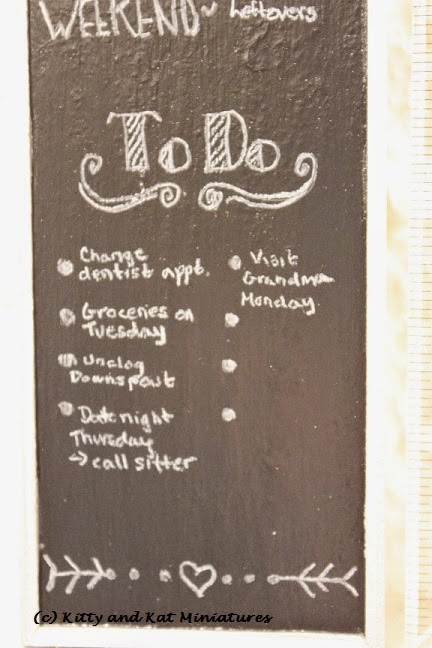 WEEKEND~ Leftovers
To Do
Change
dentist appt.
Groceries on
Tuesday
Unclog
Downspout
Date night
Thursday
→ call sitter
Visit
Grandma
Monday
(c) Kitty and Kat Miniatures